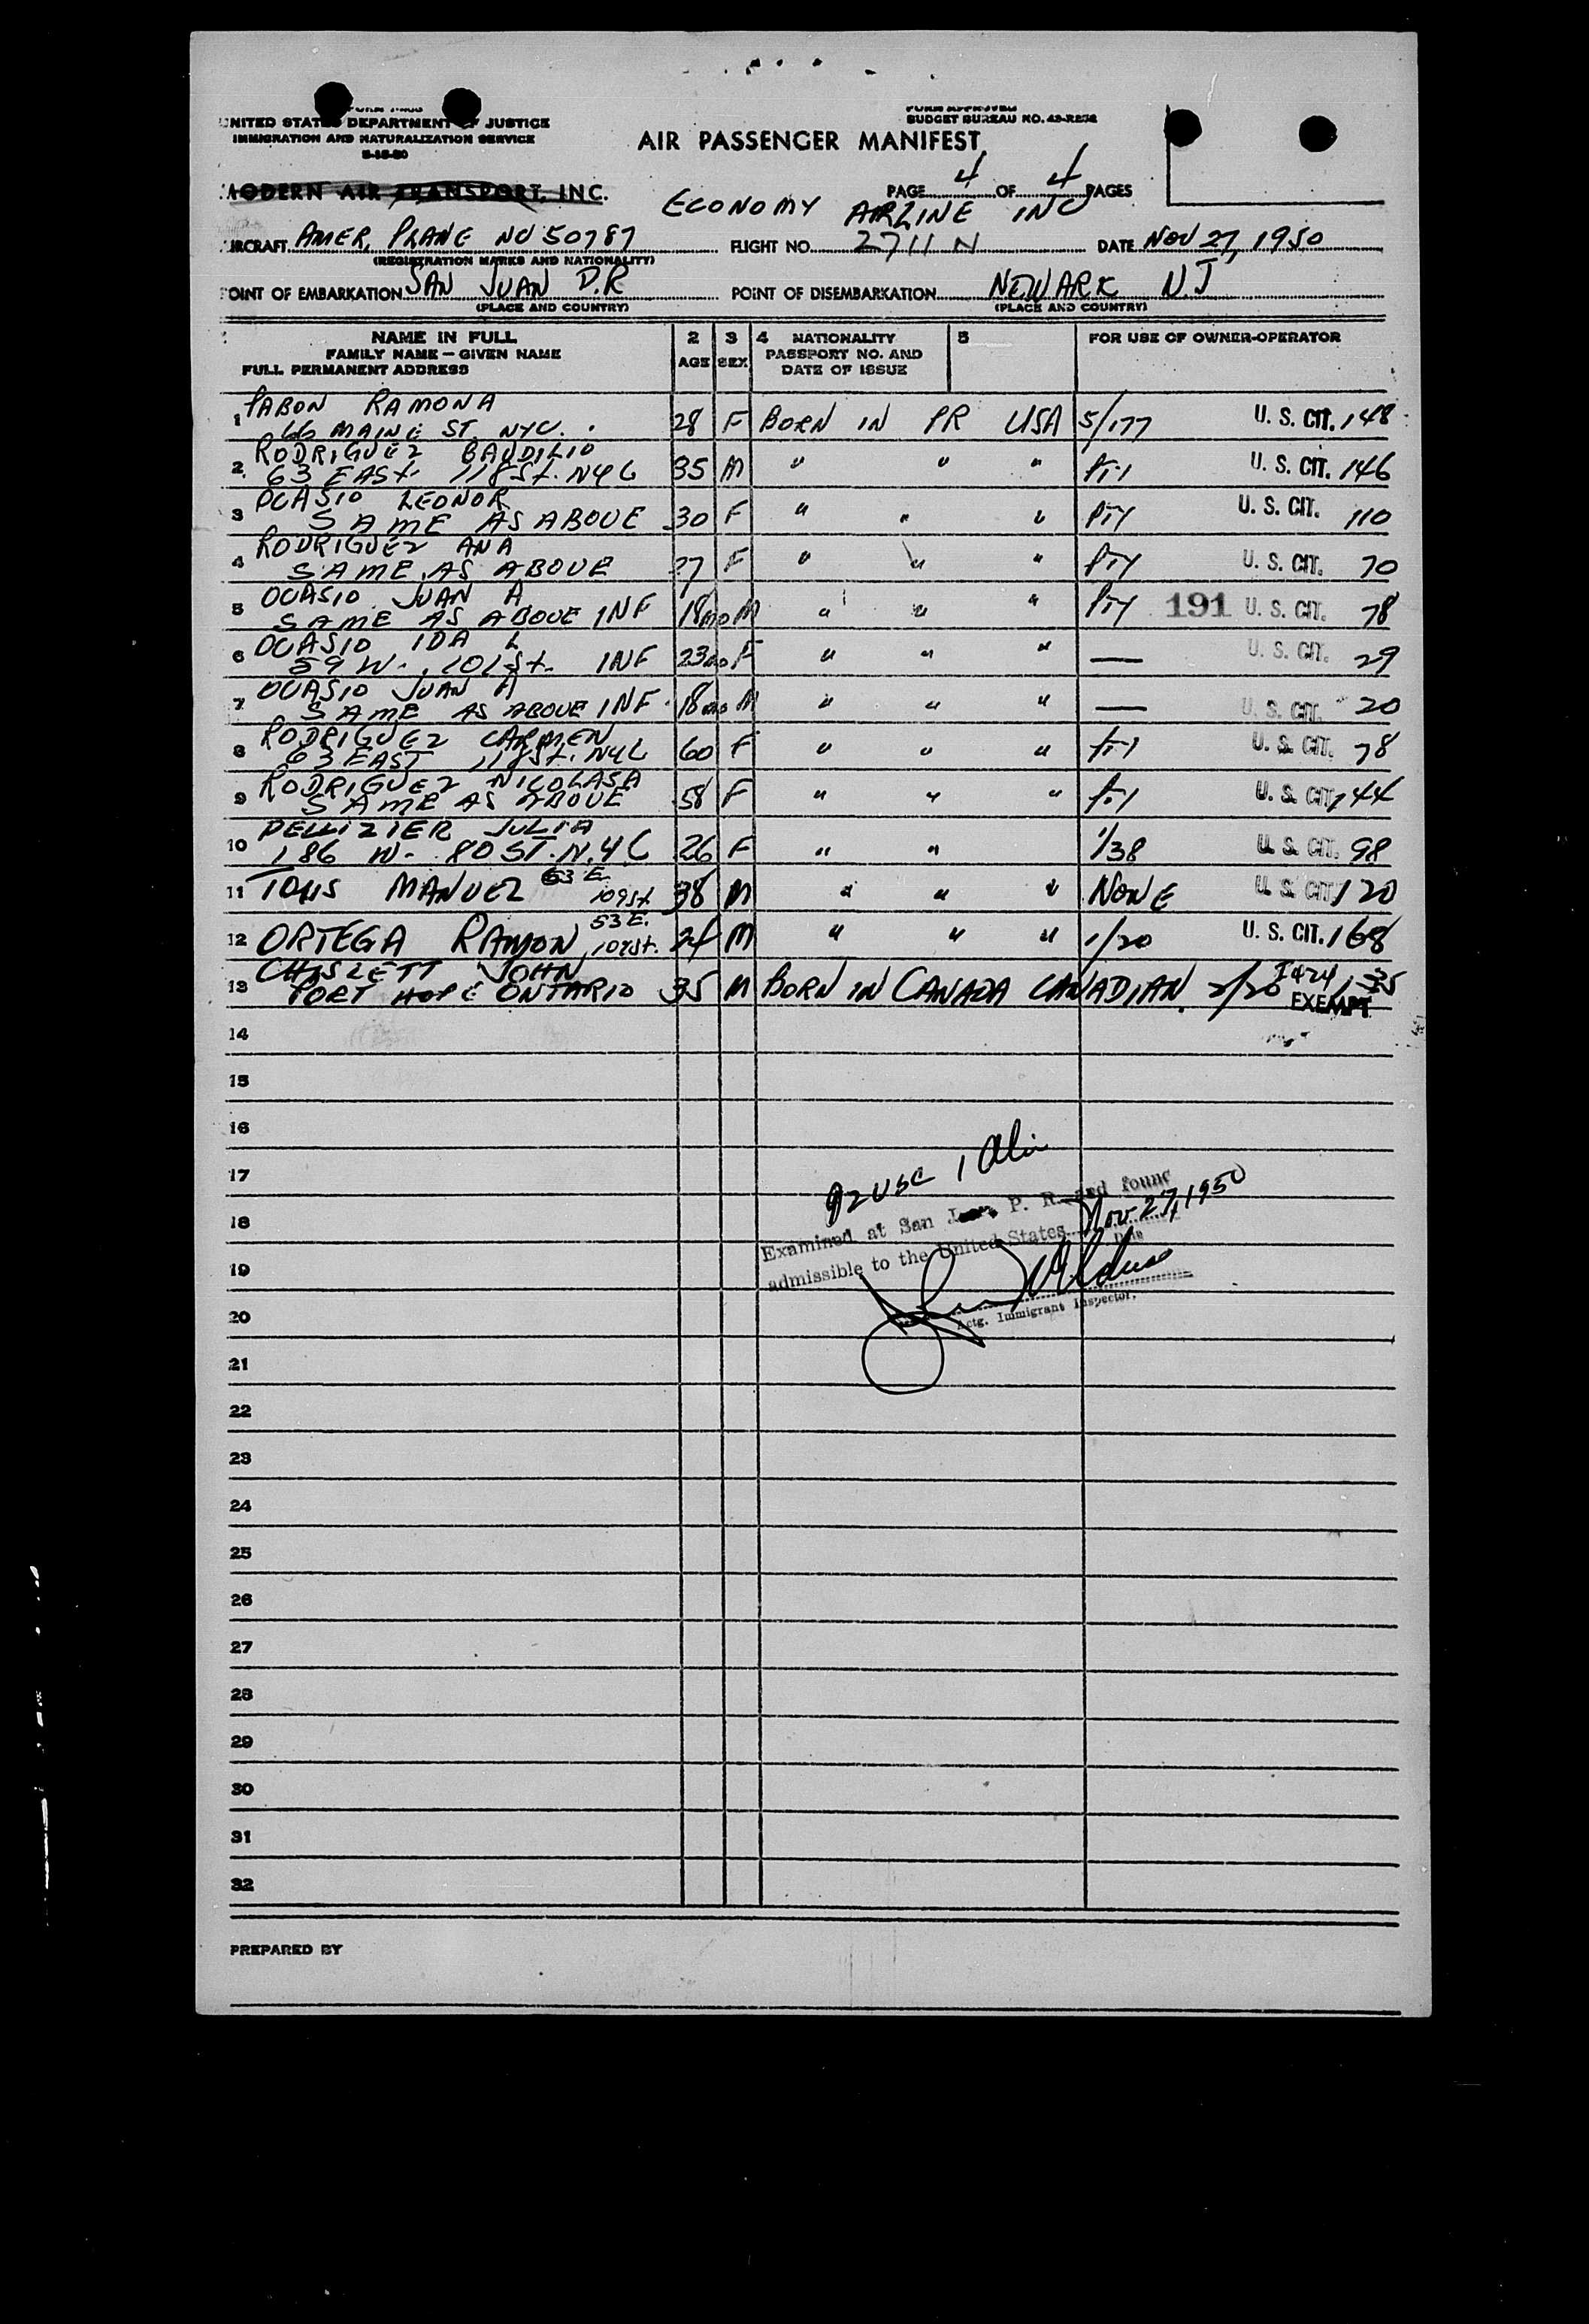 UNITED STATES DEPARTMENT OF JUSTICE
IMMIGRATION AND NATURALIZATION SERVICE
FORM APPROVED
BUDGET BUREAU NO.
AIR PASSENGER MANIFEST
MODERN AIR TRANSPORT, INC.
PAGE 4 OF 4 PAGES
ECONOMY AIRLINE INC
AIRCRAFT AMER. PLANE NO 50787 FLIGHT NO. 2711 N DATE NOV 27, 1950
(REGISTRATION MARKS AND NATIONALITY)
POINT OF EMBARKATION SAN JUAN P.R POINT OF DISEMBARKATION NEWARK N.J
(PLACE AND COUNTRY) (PLACE AND COUNTRY)
NAME IN FULL 2 3 4 NATIONALITY 5 FOR USE OF OWNER-OPERATOR
FAMILY NAME — GIVEN NAME AGE SEX PASSPORT NO. AND
FULL PERMANENT ADDRESS DATE OF ISSUE
PABON RAMONA
1 66 MAINE ST NYC. 28 F BORN IN PR USA 5/177 U. S. CIT. 148
RODRIGUEZ BAUDILIO
2 63 EAST 118 St. NYC 35 M " " " U. S. CIT. 146
OCASIO LEONOR
3 SAME AS ABOVE 30 F " " " U. S. CIT. 110
RODRIGUEZ ANA
4 SAME AS ABOVE 27 F " " " U. S. CIT. 70
OCASIO JUAN A
5 SAME AS ABOVE INF 18 mo M " " " 191 U. S. CIT. 78
OCASIO IDA L
6 59 W. 101 St. INF 23 mo F " " " — U. S. CIT. 29
OCASIO JUAN A
7 SAME AS ABOVE INF 18 mo M " " " — U. S. CIT. 20
RODRIGUEZ CARMEN
8 63 EAST 118 St. NYC 60 F " " " U. S. CIT. 78
RODRIGUEZ NICOLASA
9 SAME AS ABOVE 58 F " " " U. S. CIT. 144
PELLIZIER JULIA
10 186 W. 80 ST. N.Y C 26 F " " 1/38 U. S. CIT. 98
11 MANUEL 63 E. 109 St 38 M " " " NONE U. S. CIT. 120
12 ORTEGA RAMON 53 E. 24 M " " " 1/20 U. S. CIT. 168
CHISLETT JOHN
13 PORT HOPE ONTARIO 35 M BORN IN CANADA CANADIAN 2/20 I424 135
EXEMPT
14
15
16
17
18
19
20
21
22
23
24
25
26
27
28
29
30
31
32
USC 1 Alien
Examined at San Juan, P. R. and found
admissible to the United States Nov. 27, 1950
Date
Actg. Immigrant Inspector.
PREPARED BY